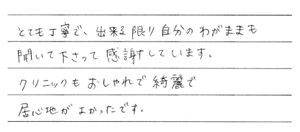 とても丁寧で、出来る限り自分のわがままも
聞いて下さって感謝しています。
クリニックもおしゃれで綺麗で
居心地がよかったです。